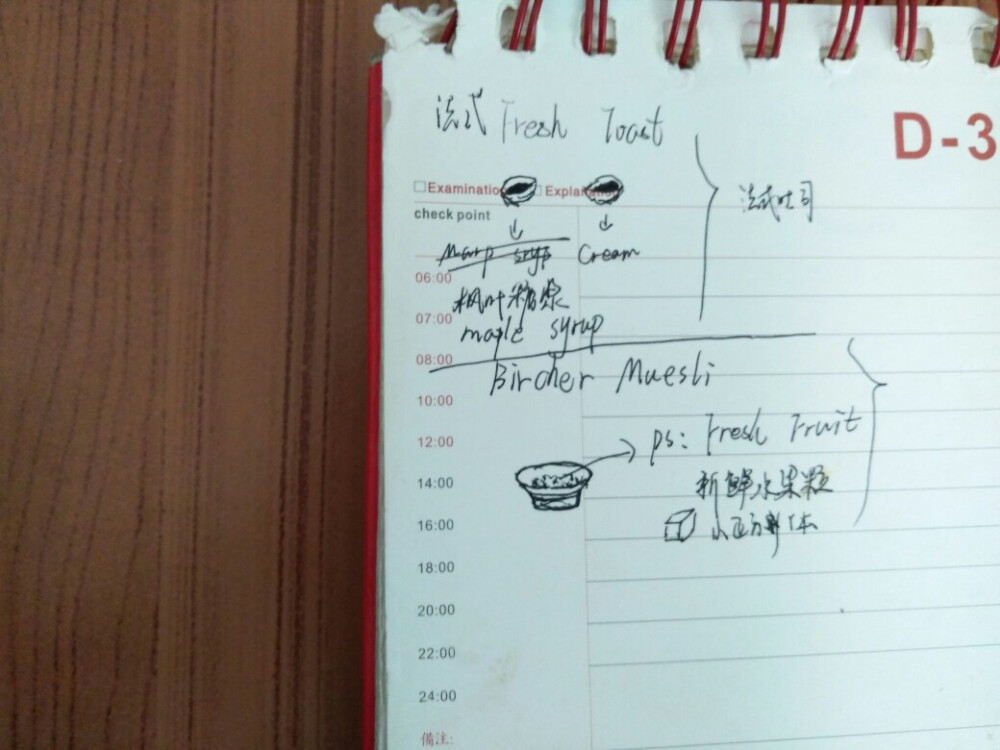 法式 Fresh Toast
D-3
Examination Explana
check point
Marp syrp Cream
06:00
枫叶糖浆
07:00
maple syrup
法式吐司
08:00
Bircher Muesli
10:00
ps: Fresh Fruit
12:00
新鲜水果粒
14:00
小正方形体
16:00
18:00
20:00
22:00
24:00
備注: